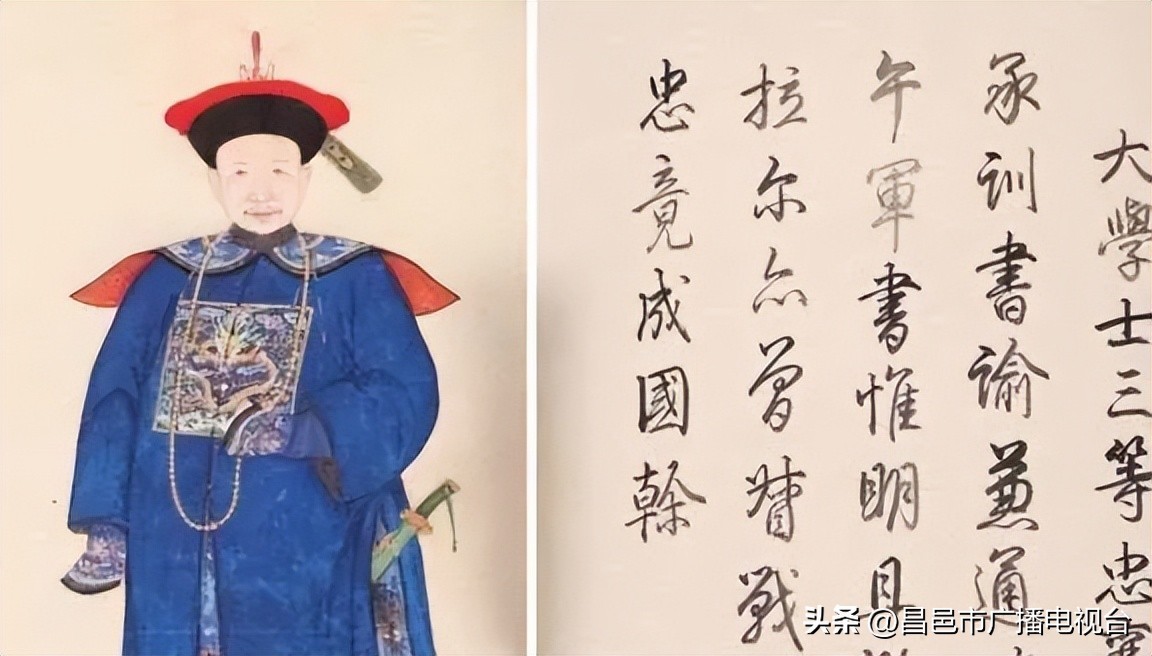 大學士三等忠
承訓書諭兼通
午軍書惟明且
拉尔亦曾督戰
忠竟成國幹
头条 @昌邑市广播电视台